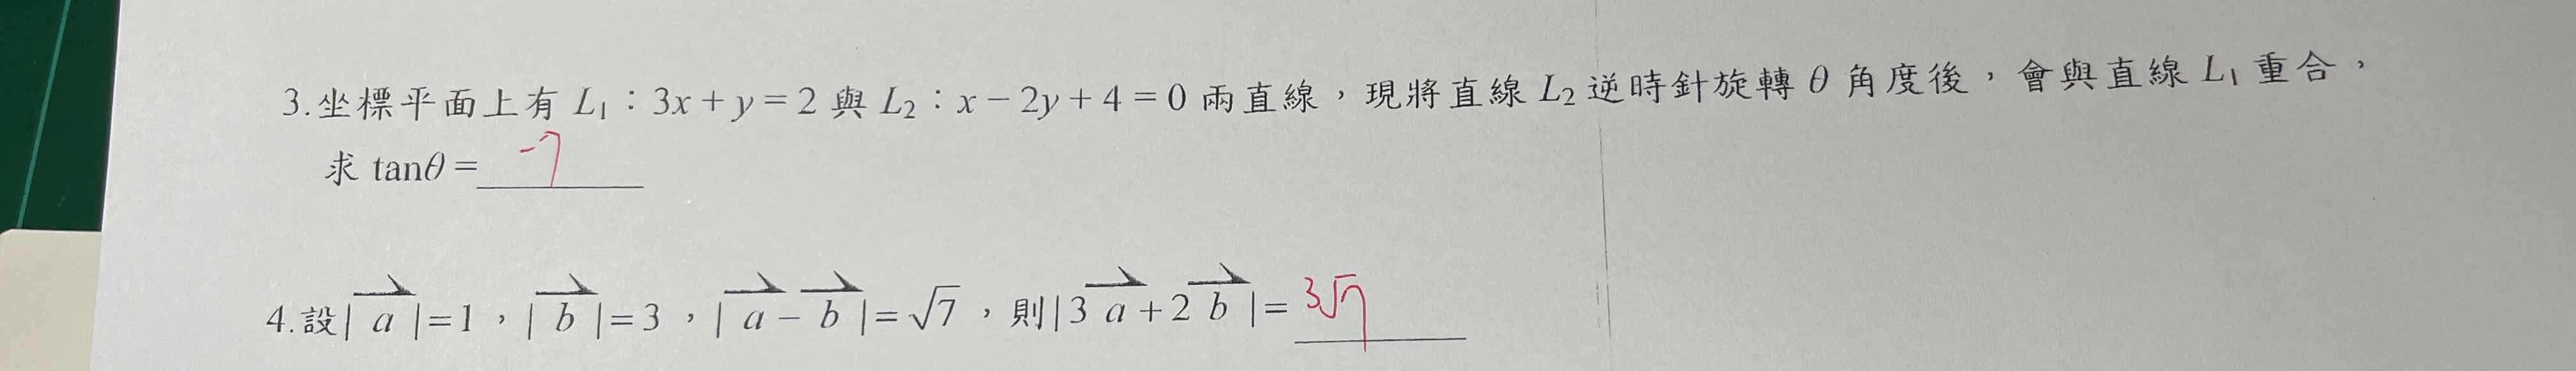 3.坐標平面上有 L₁:3x+y=2 與 L₂:x−2y+4=0 兩直線,現將直線 L₂ 逆時針旋轉 θ 角度後,會與直線 L₁ 重合,
求 tanθ= -7
4.設|a⃗|=1,|b⃗|=3,|a⃗−b⃗|=√7,則|3a⃗+2b⃗|= 3√7